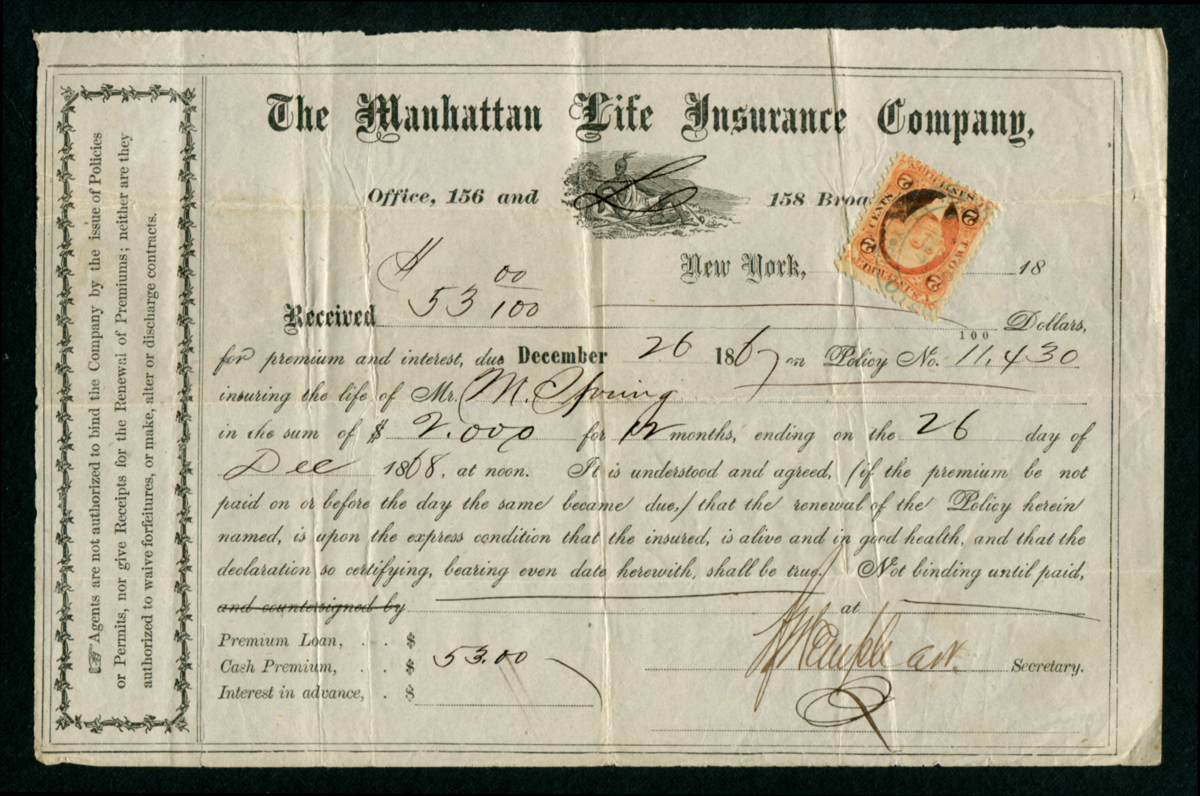 The Manhattan Life Insurance Company,
Office, 156 and 158 Broa
New York, 18
$ 53 00/100
Received 100 Dollars,
for premium and interest, due December 26 1867 on Policy No. 11,430
insuring the life of Mr. M.
in the sum of $ 2.000 for 12 months, ending on the 26 day of
Dec 1868, at noon. It is understood and agreed, (if the premium be not
paid on or before the day the same became due,) that the renewal of the Policy herein
named, is upon the express condition that the insured, is alive and in good health, and that the
declaration so certifying, bearing even date herewith, shall be true. Not binding until paid,
and countersigned by at
Premium Loan, . . $
Cash Premium, . . $ 53.00
Interest in advance, . $
Secretary.
Agents are not authorized to bind the Company by the issue of Policies
or Permits, nor give Receipts for the Renewal of Premiums; neither are they
authorized to waive forfeitures, or make, alter or discharge contracts.
2 2
CENTS
TWO
2 2